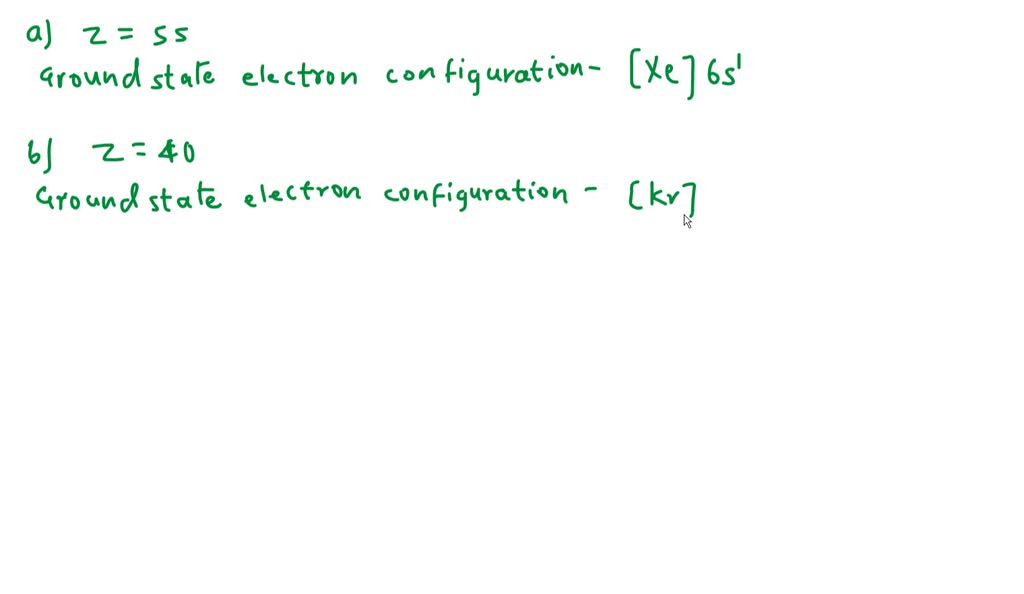 a) z = 55
Ground state electron configuration- [Xe] 6s¹
b) z = 40
Ground state electron configuration - [kr]